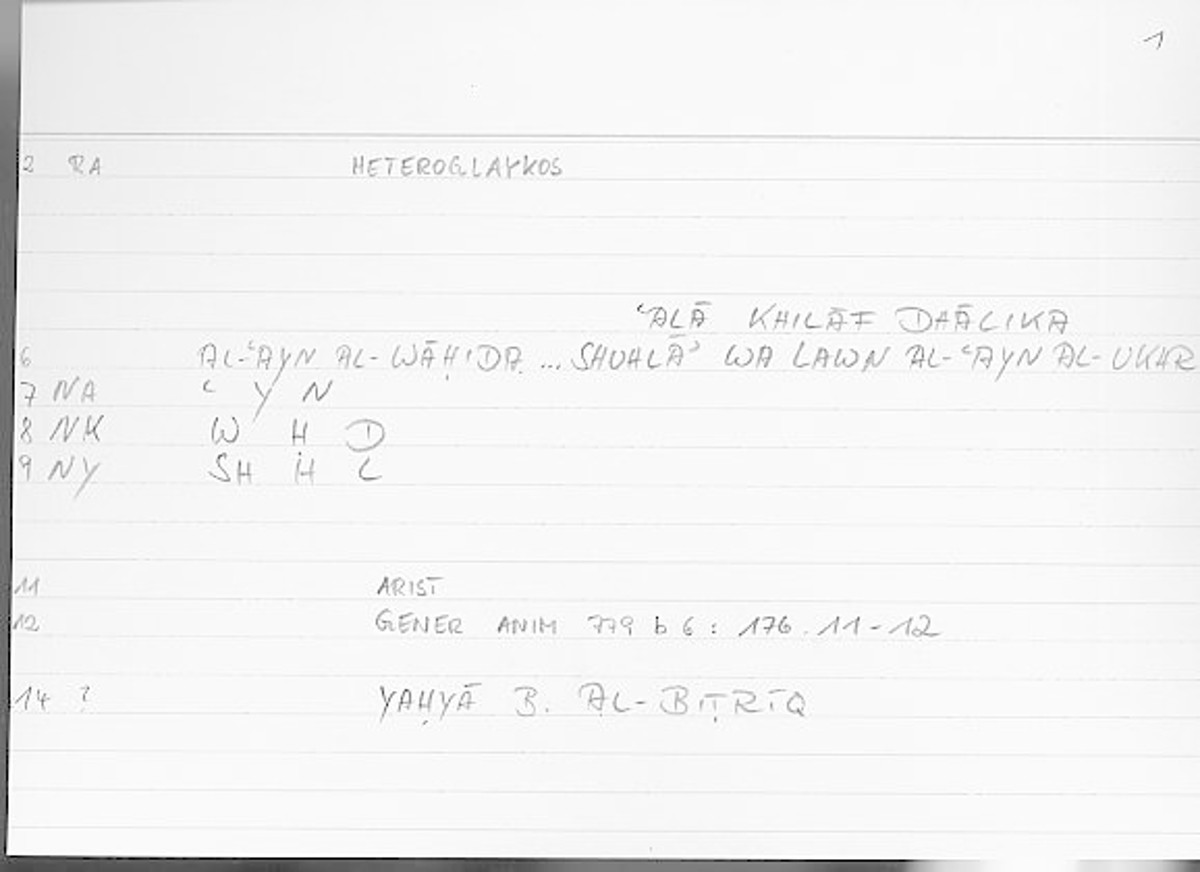 1
2 RA HETEROGLAYKOS
ʿALĀ KHILĀF DHĀLIKA
6 AL-ʿAYN AL-WĀḤIDA ... SHUHLĀʾ WA LAWN AL-ʿAYN AL-UKHR
7 NA ʿ Y N
8 NK W Ḥ D
9 NY SH H L
11 ARIST
12 GENER ANIM 779 b 6 : 176.11-12
14 ? YAḤYĀ B. AL-BIṬRĪQ